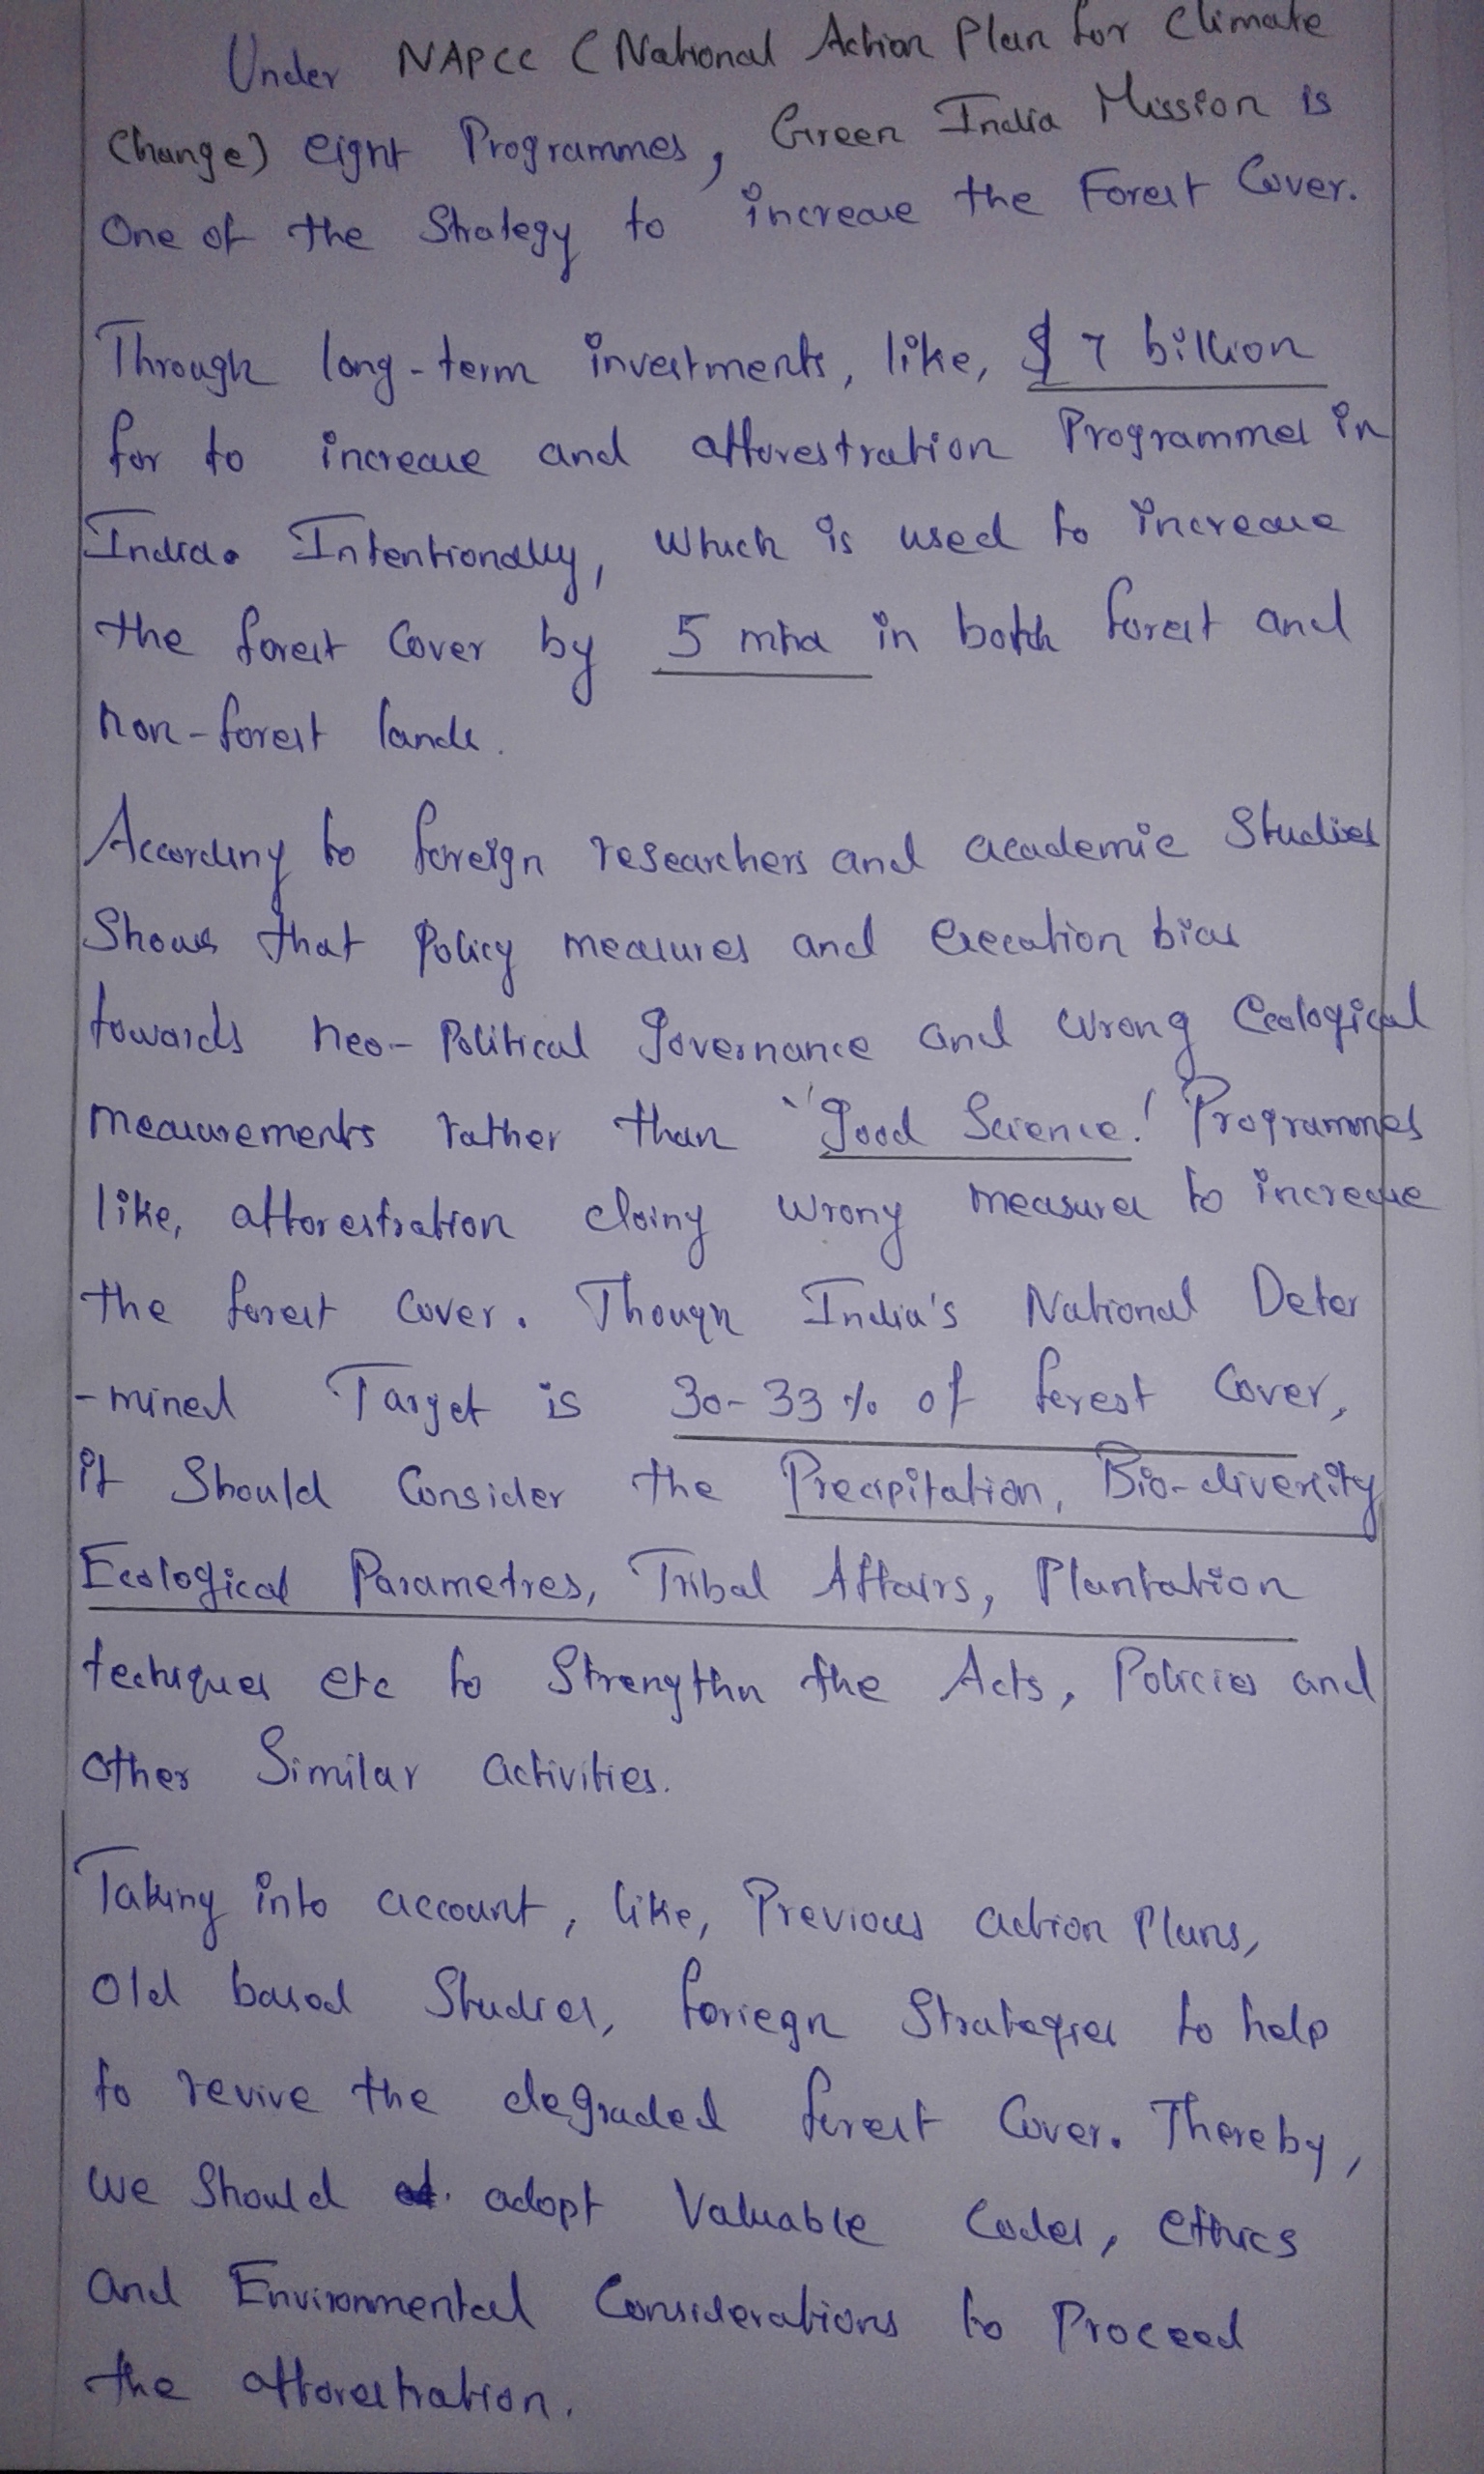 Under NAPCC (National Action Plan for Climate
Change) eight Programmes, Green India Mission is
One of the Strategy to increase the Forest Cover.
Through long-term investments, like, $ 7 billion
for to increase and afforestration Programmes in
India. Intentionally, which is used to increase
the forest Cover by 5 mha in both forest and
non-forest lands.
According to foreign researchers and academic Studies
Shows that policy measures and execution bias
towards neo-Political governance and wrong Ecological
measurements rather than "good Science! Programmes
like, afforestration doing wrong measures to increase
the forest Cover. Though India's National Deter
-mined Target is 30-33% of forest Cover,
it Should Consider the Precipitation, Bio-diversity
Ecological Parametres, Tribal Affairs, Plantation
techniques etc to Strengthn the Acts, Policies and
other Similar activities.
Taking into account, like, Previous action Plans,
old based Studies, foriegn Strategies to help
to revive the degraded forest Cover. Thereby,
we Should adopt Valuable Codes, Ethics
and Environmental Considerations to Proceed
the afforestration.